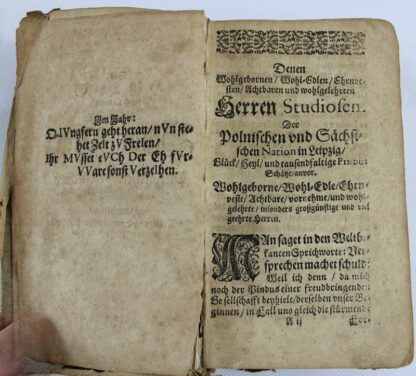 Im Jahr:
O JVngfern geht heran/ nVn ste-
het ZeIt zV FreIen/
Ihr MVsset eVCh Der Eh fVr-
VVar sonst Verzelhen.
Denen
Wohlgebornen/ Wohl-Edlen/ Ehrnve-
sten/ Achtbaren und wohlgelehrten
Herren Studiosen.
Der
Polnischen vnd Sächsi-
schen Nation in Leipzig/
Glück/ Heyl/ und tausendfaltige PINDUS
Schätze/ anvor.
Wohlgeborne/ Wohl-Edle/ Ehrn-
veste/ Achtbare/ vornehme/ und wohl-
gelehrte/ insonders großgünstige und viel
geehrte Herren.
MAn saget in den Weltbe-
kanten Sprichworte: Ver-
sprechen machet schuld:
Weil ich denn/ da mich
noch der Pindus einer freudbringenden
Gesellschafft beyhielt/ derselben vnser Be-
ginnen/ in Fall uns gleich die stürmende
A ij
For-